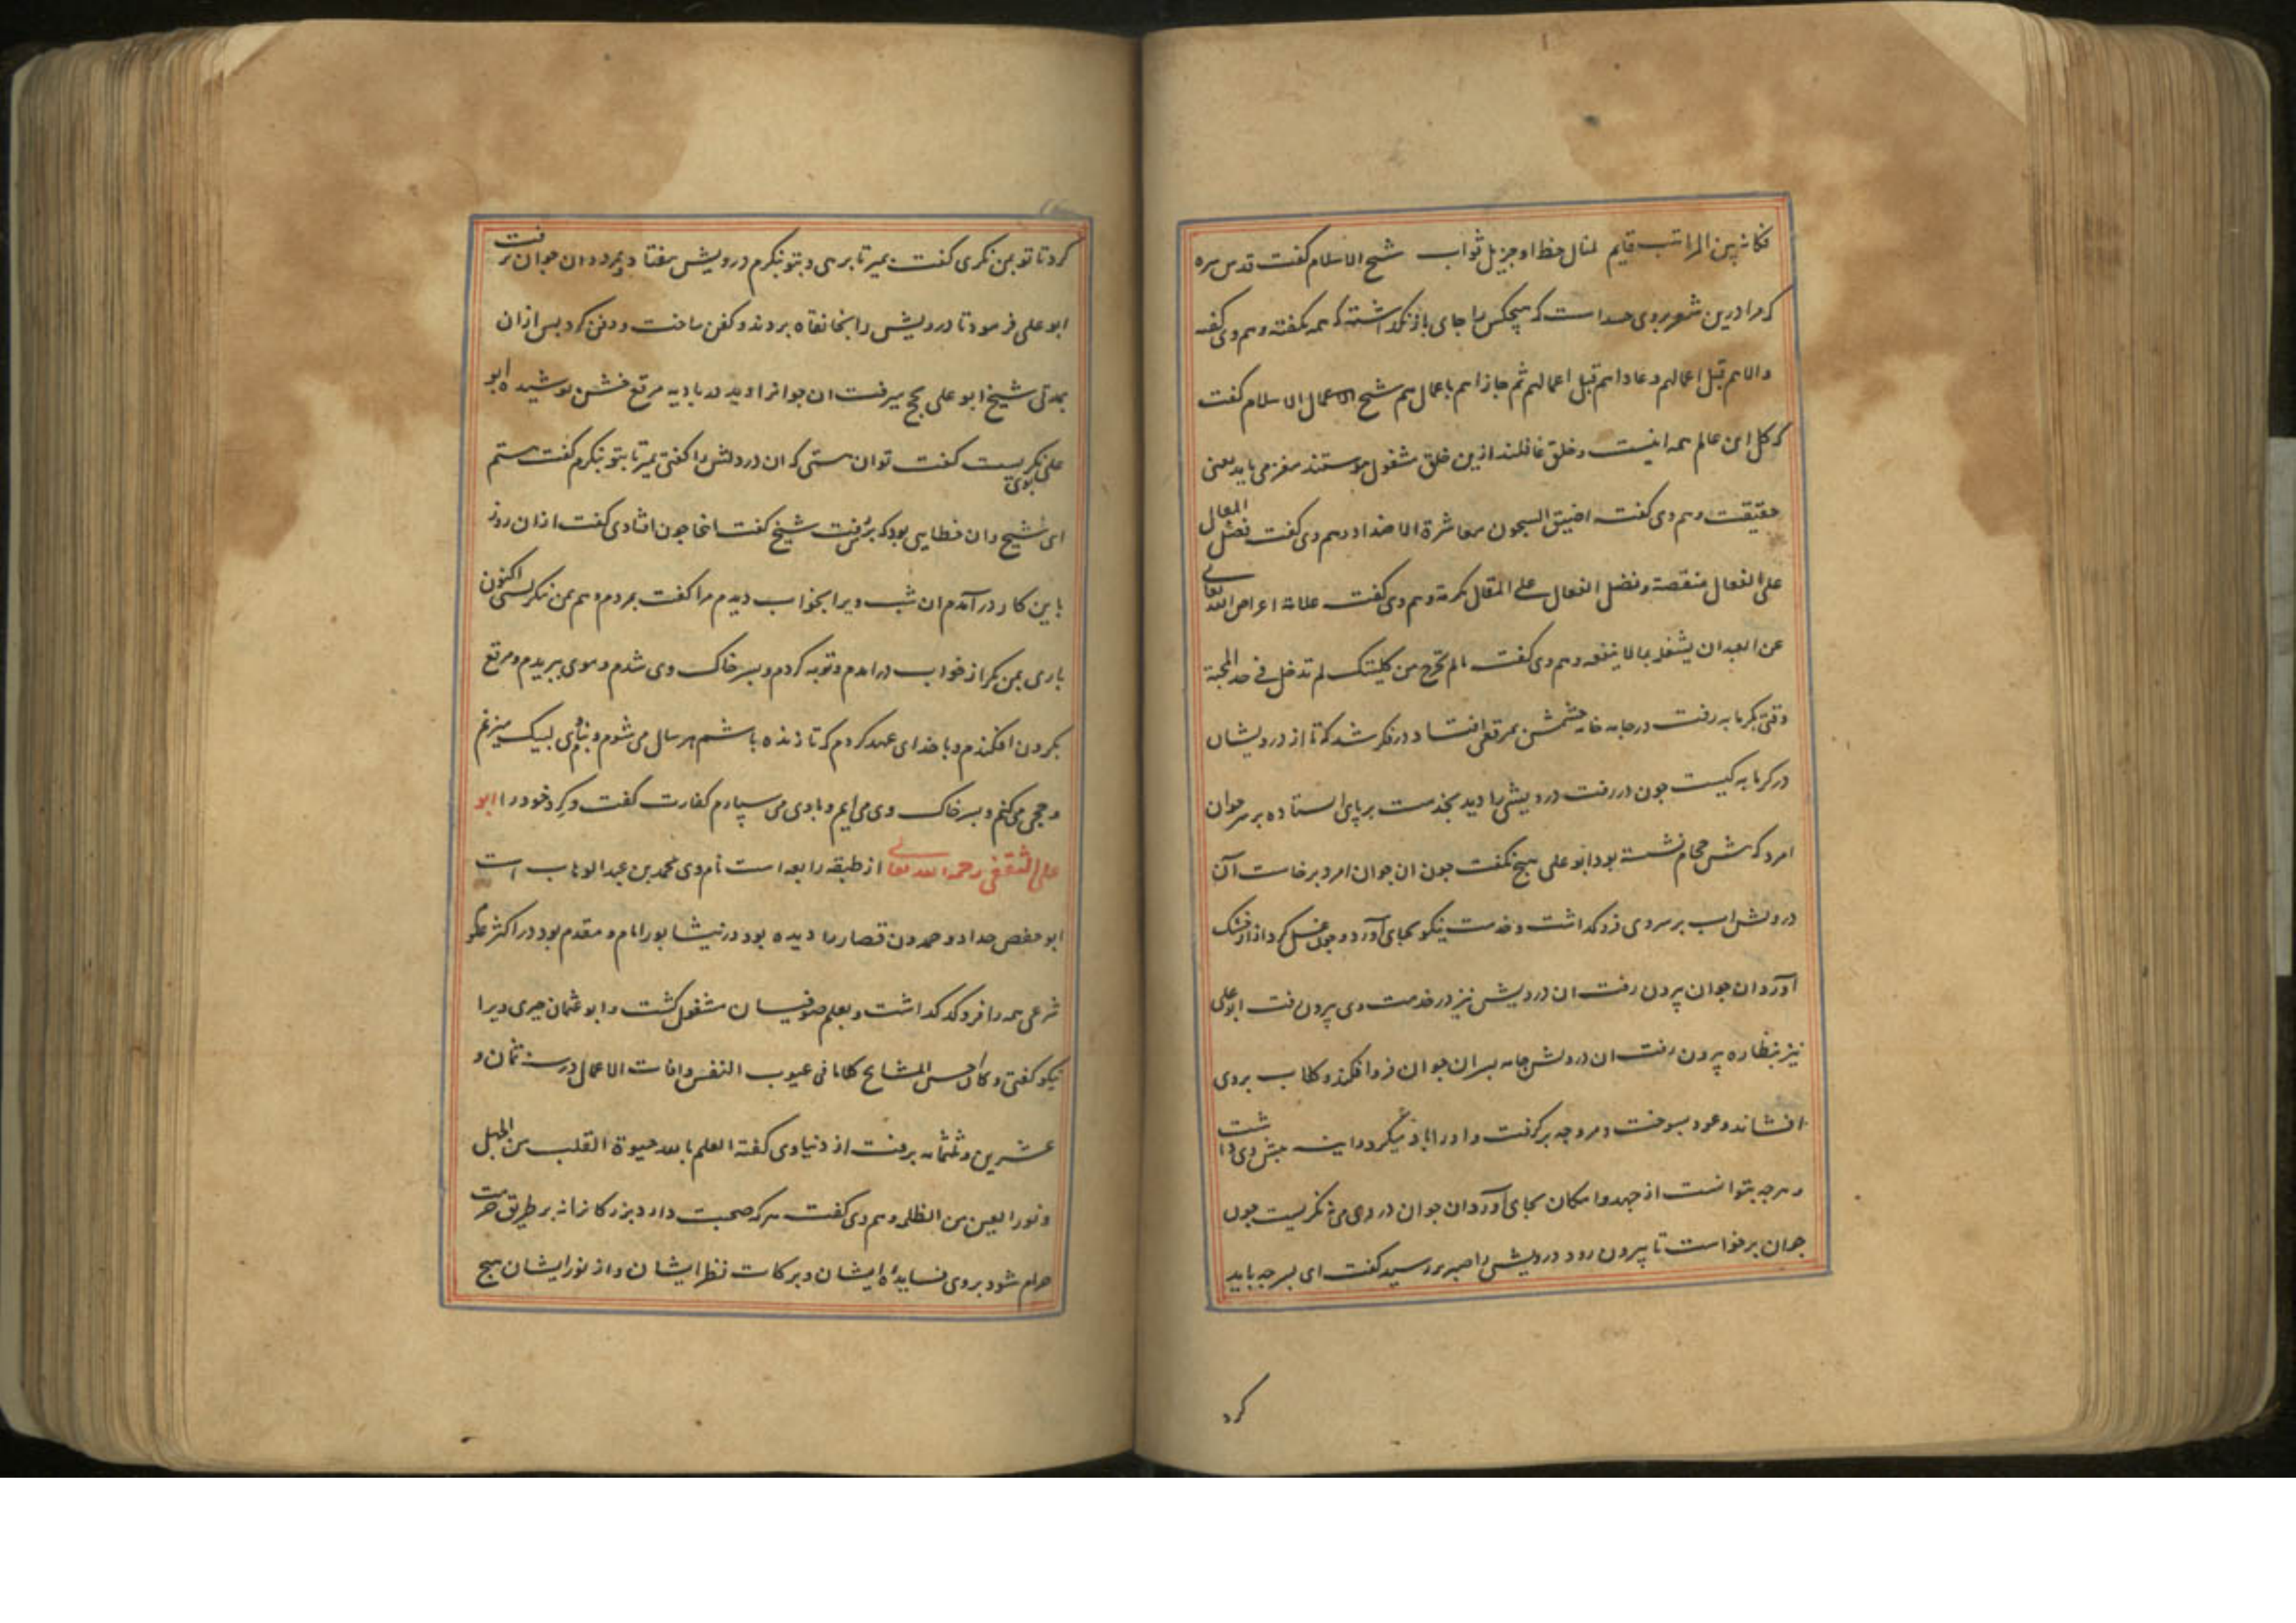 فکانه بین المراتب قایم لمنال حظ او جزیل ثواب شیخ الاسلام گفت قدس سره
که مرا درین شعر بروی حسد است که هیچکس را جای باز نگذاشته که همه بگفته و هم وی گفته
والاهم قبل اعمالهم و عاداهم قبل اعمالهم ثم جازاهم باعمالهم شیخ الاسلام گفت
که کل این عالم همه اینست و خلق غافلند ازین خلق مشغول پوستند مغز می باید یعنی
حقیقت و هم وی گفته اضیق السجون معاشرة الاضداد و هم وی گفت فضل المقال
علی الفعال منقصة و فضل الفعال علی المقال مکرمة و هم وی گفت علامة اعراض الله تعالی
عن العبد ان یشغله بما لا ینفعه و هم وی گفت مالم تخرج من کلیتک لم تدخل فی حد المحبة
وقتی بکرمابه رفت در جامه خانه چشمش بمرقعی افتاد در فکر شد که تا از درویشان
در کرمابه کیست چون در رفت درویشی را دید بخدمت بر پای استاده بر سر جوان
امرد که پیش حجام نشسته بود ابو علی هیچ نگفت چون ان جوان امرد برخاست آن
درویش اب بر سر وی فرو گذاشت و خدمت نیکو بجای آورد و چون غسل کرد ازار خشک
آورد و ان جوان بیرون رفت ان درویش نیز در خدمت وی بیرون رفت ابو علی
نیز بنظاره بیرون رفت ان درویش جامه بسر ان جوان فرو افکند و گلاب بروی
افشاند و عود بسوخت و مروحه برگرفت و او را باد میکرد و اینه پیش وی داشت
و هرچه بتوانست از جهد و امکان بجای آورد ان جوان در وی می نگریست چون
جوان برخواست تا بیرون رود درویش را صبر برسید گفت ای پسر چه باید
کرد
کرد تا تو بمن نگری گفت بمیر تا برهی و بتو نگرم درویش بیفتاد و بمرد و ان جوان برفت
ابو علی فرمود تا درویش را بخانقاه بردند و کفن ساخت و دفن کرد پس ازان
بمدتی شیخ ابو علی بحج میرفت ان جوانرا دید در بادیه مرقع خشن پوشیده ابو
علی بوی نگریست گفت تو ان هستی که ان درویش را گفتی بمیر تا بتو نگرم گفت هستم
ای شیخ و ان خطایی بود که برفت شیخ گفت اینجا چون افتادی گفت ازان روز
باین کار در آمدم ان شب ویرا بخواب دیدم مرا گفت بمردم و هم بمن ننگریستی اکنون
باری بمن نگر از خواب درامدم و توبه کردم و بسر خاک وی شدم و موی ببریدم و مرقع
بگردن افکندم و با خدای عهد کردم که تا زنده باشم هر سال می شوم و بنام وی لبیک میزنم
و حجی می کنم و بسر خاک وی می ایم و با وی می سپارم کفارت گفت و کرد خود را ابو
علی الثقفی رحمه الله تعالی از طبقه رابعه است نام وی محمد بن عبد الوهاب است
ابو حفص حداد و حمدون قصار را دیده بود در نیشابور امام و مقدم بود در اکثر علوم
شرعی همه را فرو گذاشت و بعلم صوفیان مشغول گشت و ابو عثمان حیری ویرا
نیکو گفتی و کان احسن المشایخ کلاما فی عیوب النفس وافات الاعمال در سنه ثمان و
عشرین و ثلثمایه برفت از دنیا وی گفته العلم بالله حیوة القلب من الجهل
و نور العین من الظلمه و هم وی گفت هر که صحبت دارد بزرگانرا نه بر طریق حرمت
حرام شود بروی فایده ایشان و برکات نظر ایشان و از نور ایشان هیچ